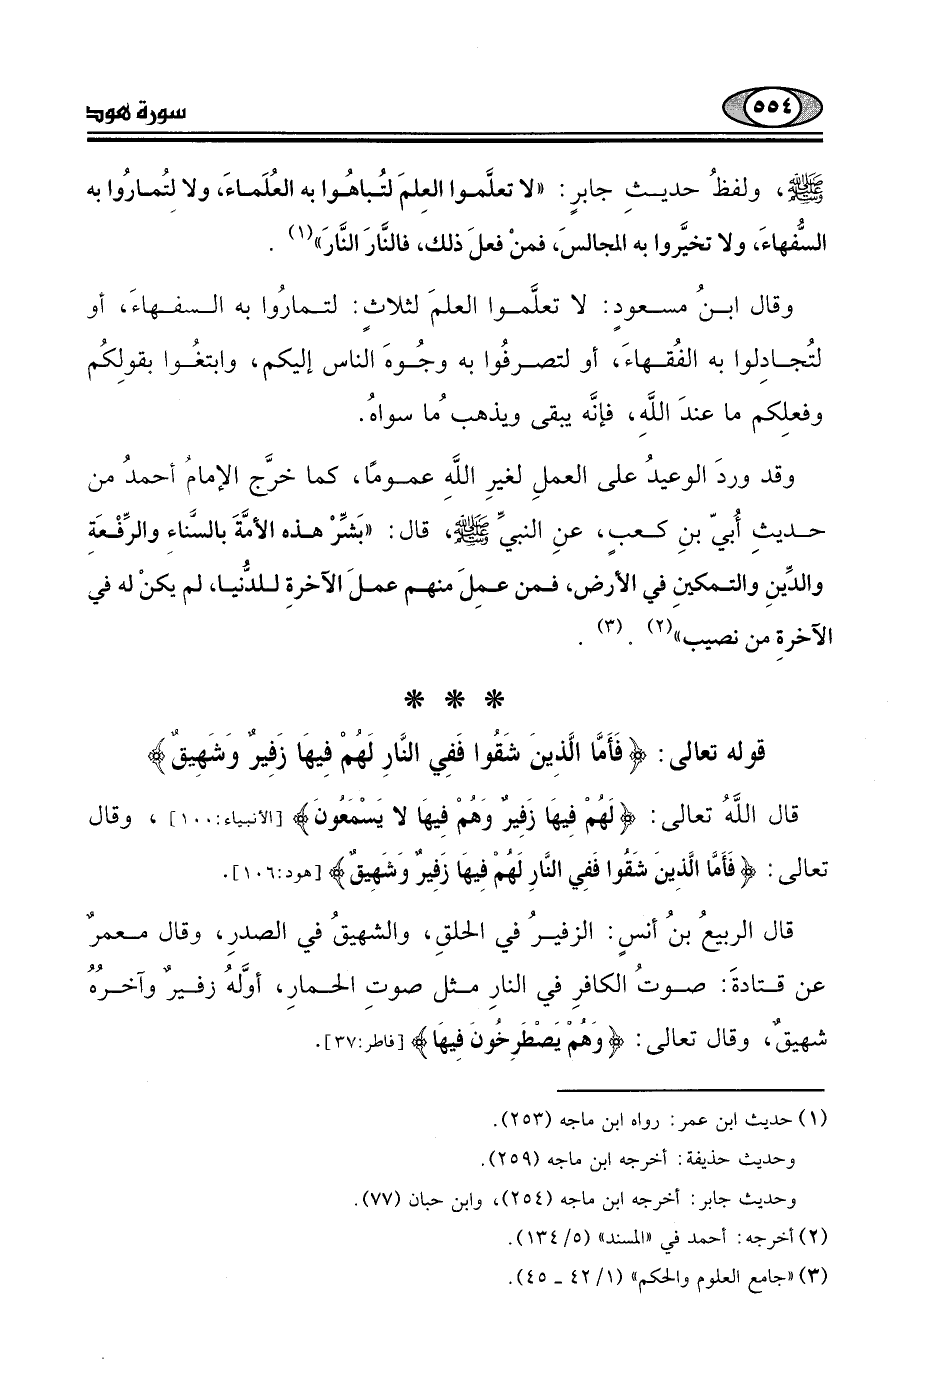 سورة هود
٥٥٤
ﷺ، ولفظُ حديثِ جابرٍ: «لا تعلَّموا العلمَ لتُباهُوا به العُلَماءَ، ولا لتُمارُوا به
السُّفهاءَ، ولا تخيَّروا به المجالسَ، فمنْ فعلَ ذلك، فالنَّارَ النَّارَ»(١) .
وقال ابنُ مسعودٍ: لا تعلَّموا العلمَ لثلاثٍ: لتمارُوا به السفهاءَ، أو
لتُجادِلوا به الفُقهاءَ، أو لتصرفُوا به وجُوهَ الناس إليكم، وابتغُوا بقولِكُم
وفعلِكم ما عندَ اللَّهِ، فإنَّه يبقى ويذهبُ ما سواهُ.
وقد وردَ الوعيدُ على العملِ لغيرِ اللَّهِ عمومًا، كما خرَّج الإمامُ أحمدُ من
حديثِ أُبيّ بنِ كعبٍ، عنِ النبيِّ ﷺ، قال: «بَشِّرْ هذه الأمَّةَ بالسَّناء والرِّفْعَةِ
والدِّينِ والتمكينِ في الأرضِ، فمن عملَ منهم عملَ الآخرةِ للدُّنيا، لم يكنْ له في
الآخرةِ من نصيب»(٢) . (٣) .
* * *
قوله تعالى: ﴿فَأَمَّا الَّذِينَ شَقُوا فَفِي النَّارِ لَهُمْ فِيهَا زَفِيرٌ وَشَهِيقٌ﴾
قال اللَّهُ تعالى: ﴿لَهُمْ فِيهَا زَفِيرٌ وَهُمْ فِيهَا لا يَسْمَعُونَ﴾ [الأنبياء:١٠٠] ، وقال
تعالى: ﴿فَأَمَّا الَّذِينَ شَقُوا فَفِي النَّارِ لَهُمْ فِيهَا زَفِيرٌ وَشَهِيقٌ﴾ [هود:١٠٦].
قال الربيعُ بنُ أنسٍ: الزفيرُ في الحلقِ، والشهيقُ في الصدرِ، وقال معمرٌ
عن قتادةَ: صوتُ الكافرِ في النارِ مثل صوتِ الحمارِ، أوَّلهُ زفيرٌ وآخرُهُ
شهيقٌ، وقال تعالى: ﴿وَهُمْ يَصْطَرِخُونَ فِيهَا﴾ [فاطر:٣٧].
(١) حديث ابن عمر: رواه ابن ماجه (٢٥٣).
وحديث حذيفة: أخرجه ابن ماجه (٢٥٩).
وحديث جابر: أخرجه ابن ماجه (٢٥٤)، وابن حبان (٧٧).
(٢) أخرجه: أحمد في «المسند» (٥/ ١٣٤).
(٣) «جامع العلوم والحكم» (١/ ٤٢ ــ ٤٥).